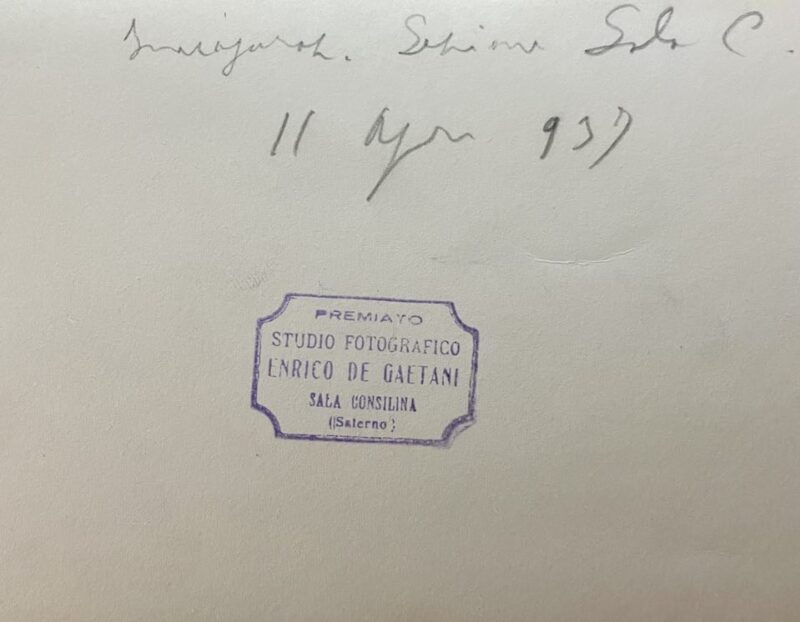 Sezione Sala C.
11 Apr 937
PREMIATO
STUDIO FOTOGRAFICO
ENRICO DE GAETANI
SALA CONSILINA
(Salerno)